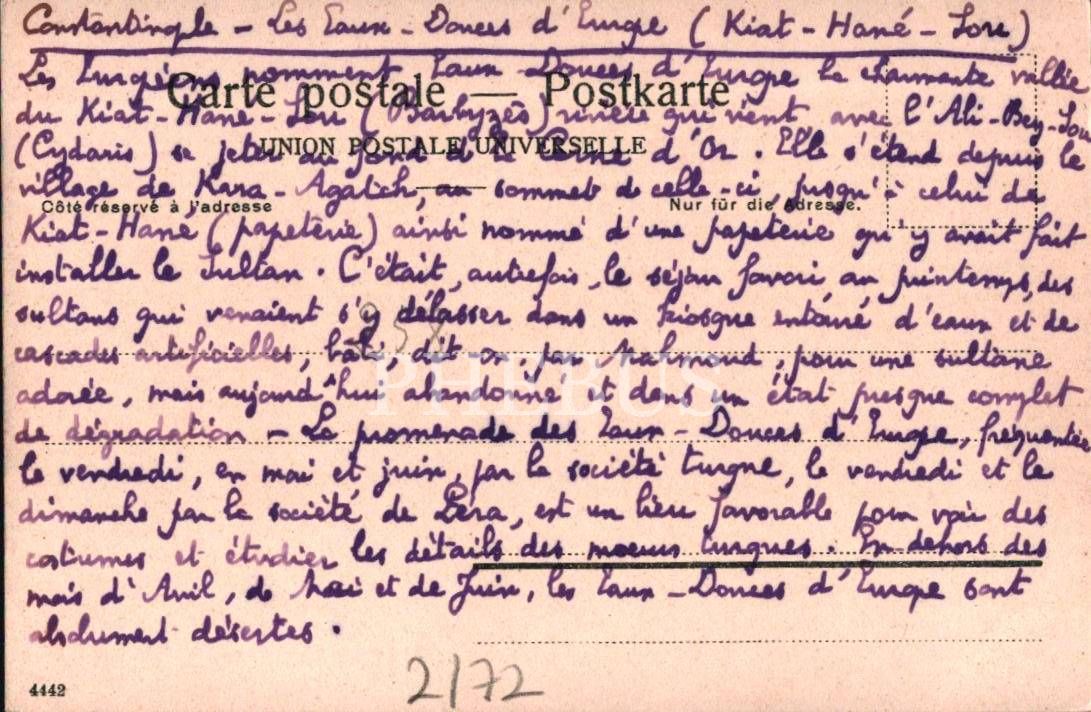 Constantinople - Les Eaux-Douces d'Europe (Kiat-Hané-Sou)
Les Européens nomment Eaux-Douces d'Europe la charmante vallée
Carte postale — Postkarte
du Kiat-Hané-Sou (Barbyzès) rivière qui vient avec l'Ali-Bey-Sou
UNION POSTALE UNIVERSELLE
(Cydaris) se jeter au fond de la Corne d'Or. Elle s'étend depuis le
village de Kara-Agatch, au sommet de celle-ci, jusqu'à celui de
Côté réservé à l'adresse
Nur für die Adresse.
Kiat-Hané (papeterie) ainsi nommé d'une papeterie qu'y avait fait
installer le Sultan. C'était, autrefois, le séjour favori, au printemps, des
sultans qui venaient s'y délasser dans un kiosque entouré d'eaux et de
cascades artificielles, bâti, dit on, par Mahmoud, pour une sultane
adorée, mais aujourd'hui abandonné et dans un état presque complet
PHEBUS
de dégradation - La promenade des Eaux-Douces d'Europe, fréquentée
le vendredi, en mai et juin, par la société turque, le vendredi et le
dimanche par la société de Péra, est un lieu favorable pour voir des
costumes et étudier les détails des moeurs turques. En dehors des
mois d'Avril, de Mai et de Juin, les Eaux-Douces d'Europe sont
absolument désertes.
4442
2/72